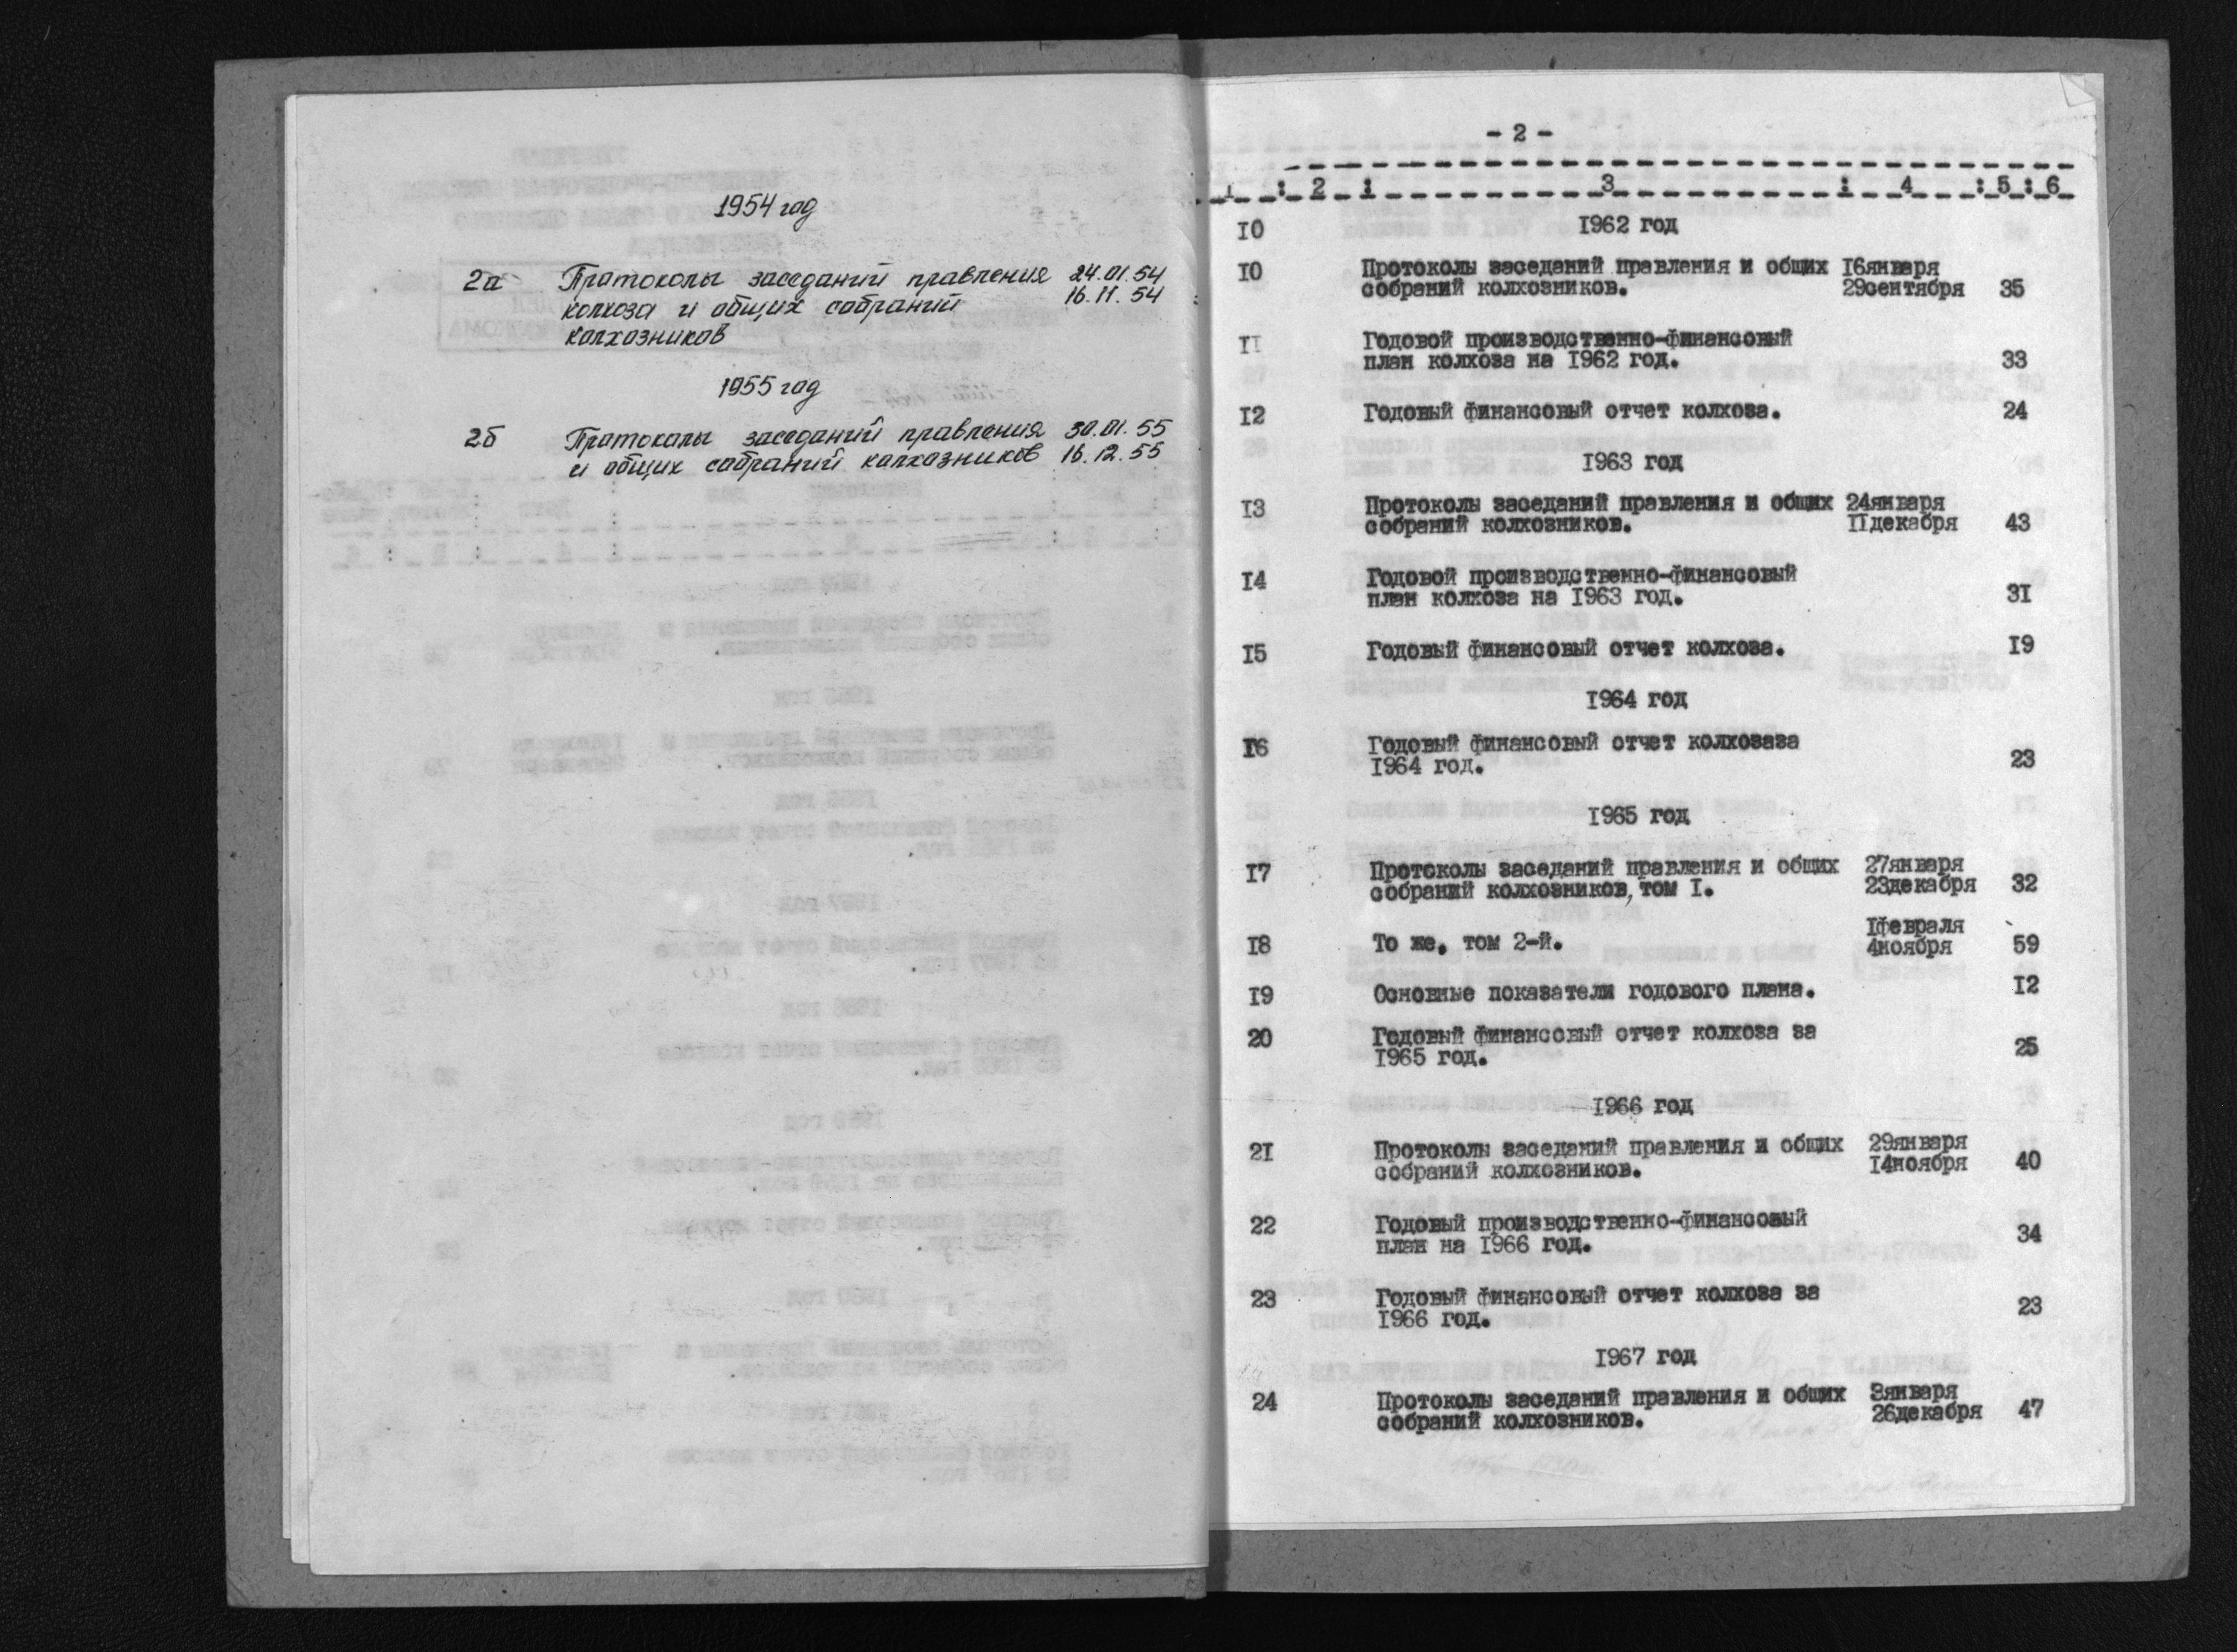 1954 год
2а Протоколы заседаний правления 24.01.54
колхоза и общих собраний 16.11.54
колхозников
1955 год
2б Протоколы заседаний правления 30.01.55
и общих собраний колхозников 16.12.55
- 2 -
1 : 2 : 3 : 4 : 5 : 6
10 1962 год
10 Протоколы заседаний правления и общих 16января
собраний колхозников. 29сентября 35
11 Годовой производственно-финансовый
план колхоза на 1962 год. 33
12 Годовый финансовый отчет колхоза. 24
1963 год
13 Протоколы заседаний правления и общих 24января
собраний колхозников. 11декабря 43
14 Годовой производственно-финансовый
план колхоза на 1963 год. 31
15 Годовый финансовый отчет колхоза. 19
1964 год
16 Годовый финансовый отчет колхозаза
1964 год. 23
1965 год
17 Протоколы заседаний правления и общих 27января
собраний колхозников, том I. 23декабря 32
1февраля
18 То же, том 2-й. 4ноября 59
19 Основные показатели годового плана. 12
20 Годовый финансовый отчет колхоза за
1965 год. 25
1966 год
21 Протоколы заседаний правления и общих 29января
собраний колхозников. 14ноября 40
22 Годовый производственно-финансовый
план на 1966 год. 34
23 Годовый финансовый отчет колхоза за
1966 год. 23
1967 год
24 Протоколы заседаний правления и общих 3января
собраний колхозников. 26декабря 47